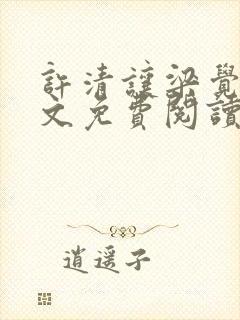 許清讓梁覺
文免費閱讀
逍遥子